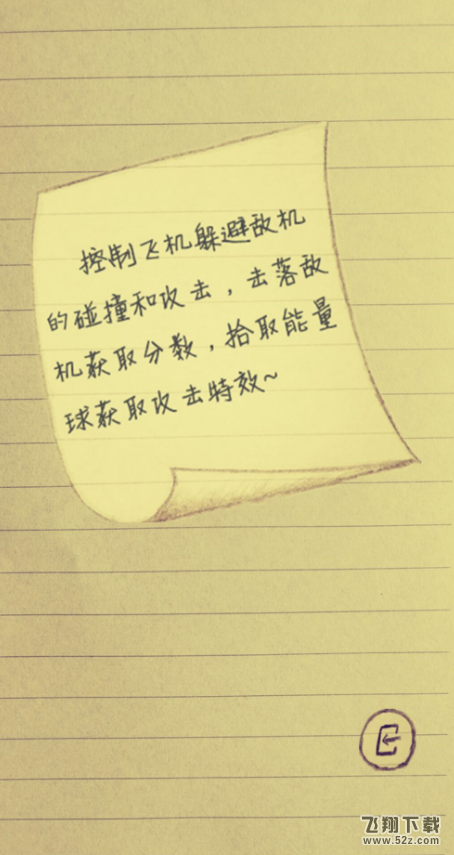 控制飞机躲避敌机
的碰撞和攻击，击落敌
机获取分数，拾取能量
球获取攻击特效~
飞翔下载
www.52z.com